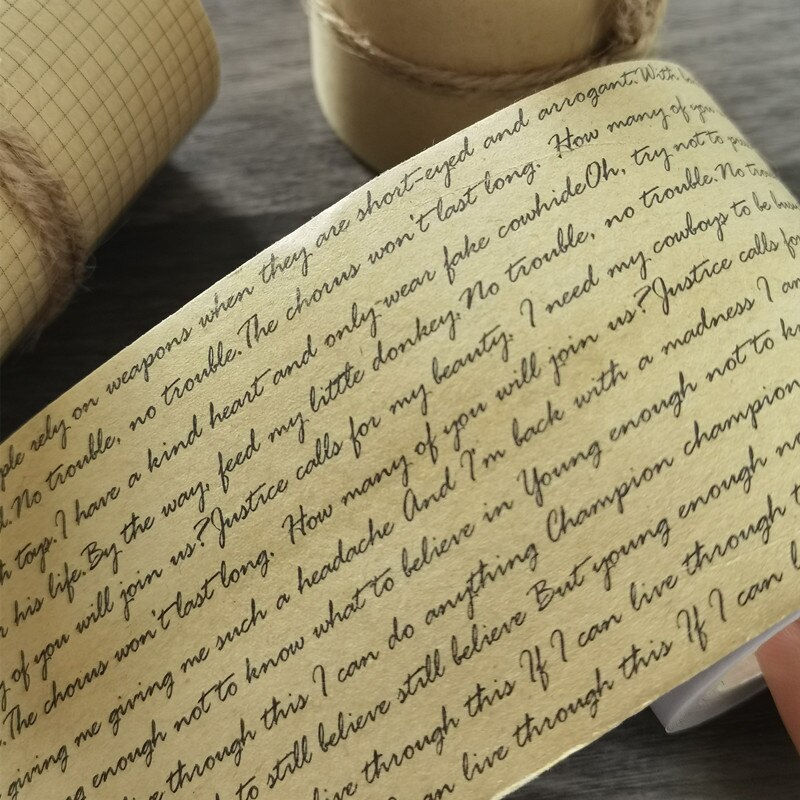 rely on weapons when they are short-eyed and arrogant. With
No trouble, no trouble. The chorus won't last long. How many of you
toys. I have a kind heart and only wear fake cowhideOh, try not to
his life. By the way, feed my little donkey. No trouble, no trouble. No
of you will join us? Justice calls for my beauty. I need my cowboys to be
The chorus won't last long. How many of you will join us? Justice calls for
giving me giving me such a headache And I'm back with a madness I am
enough not to know what to believe in Young enough not to
through this I can do anything Champion champion
to still believe still believe But young enough
live through this If I can live through
live through this If I can